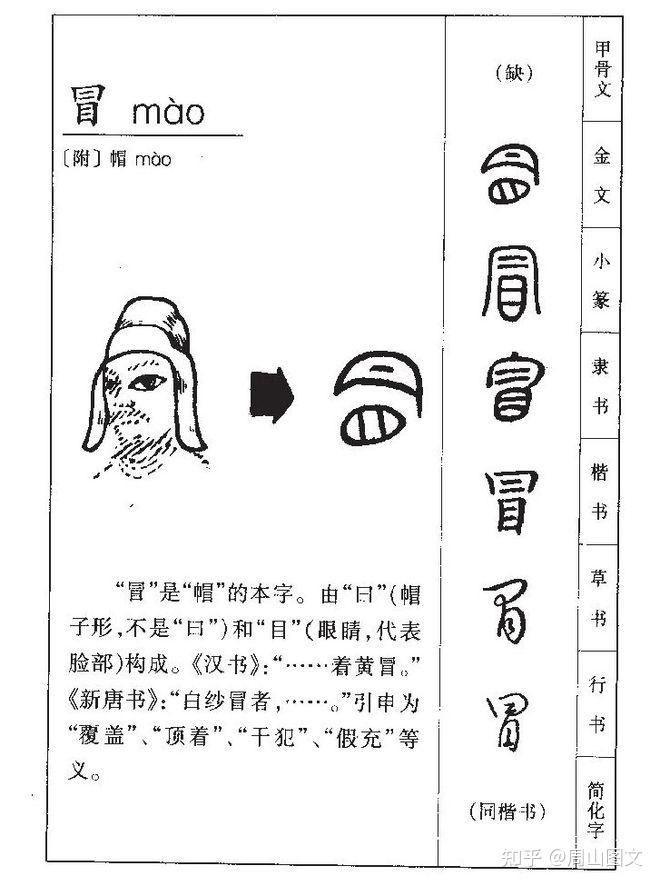 冒 mào
〔附〕帽 mào
“冒”是“帽”的本字。由“冃”(帽
子形,不是“曰”)和“目”(眼睛,代表
脸部)构成。《汉书》:“……着黄冒。”
《新唐书》:“白纱冒者,……。”引申为
“覆盖”、“顶着”、“干犯”、“假充”等
义。
(缺)
冒
冒
冒
冒
冒
冒
(同楷书)
甲骨文
金文
小篆
隶书
楷书
草书
行书
简化字
知乎 @周山图文